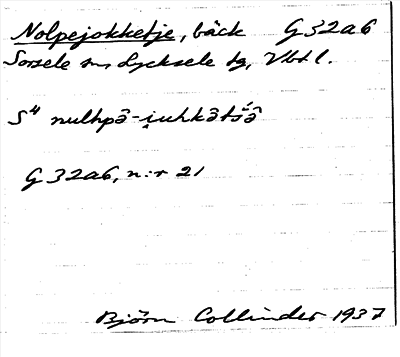 Nolpejokketje, bäck G 32a6
Sorsele sn, Lycksele tg, Vbtl.
S⁴ nulhpā-i̯uhkātśā̂
G 32a6, n:r 21
Björn Collinder 1937